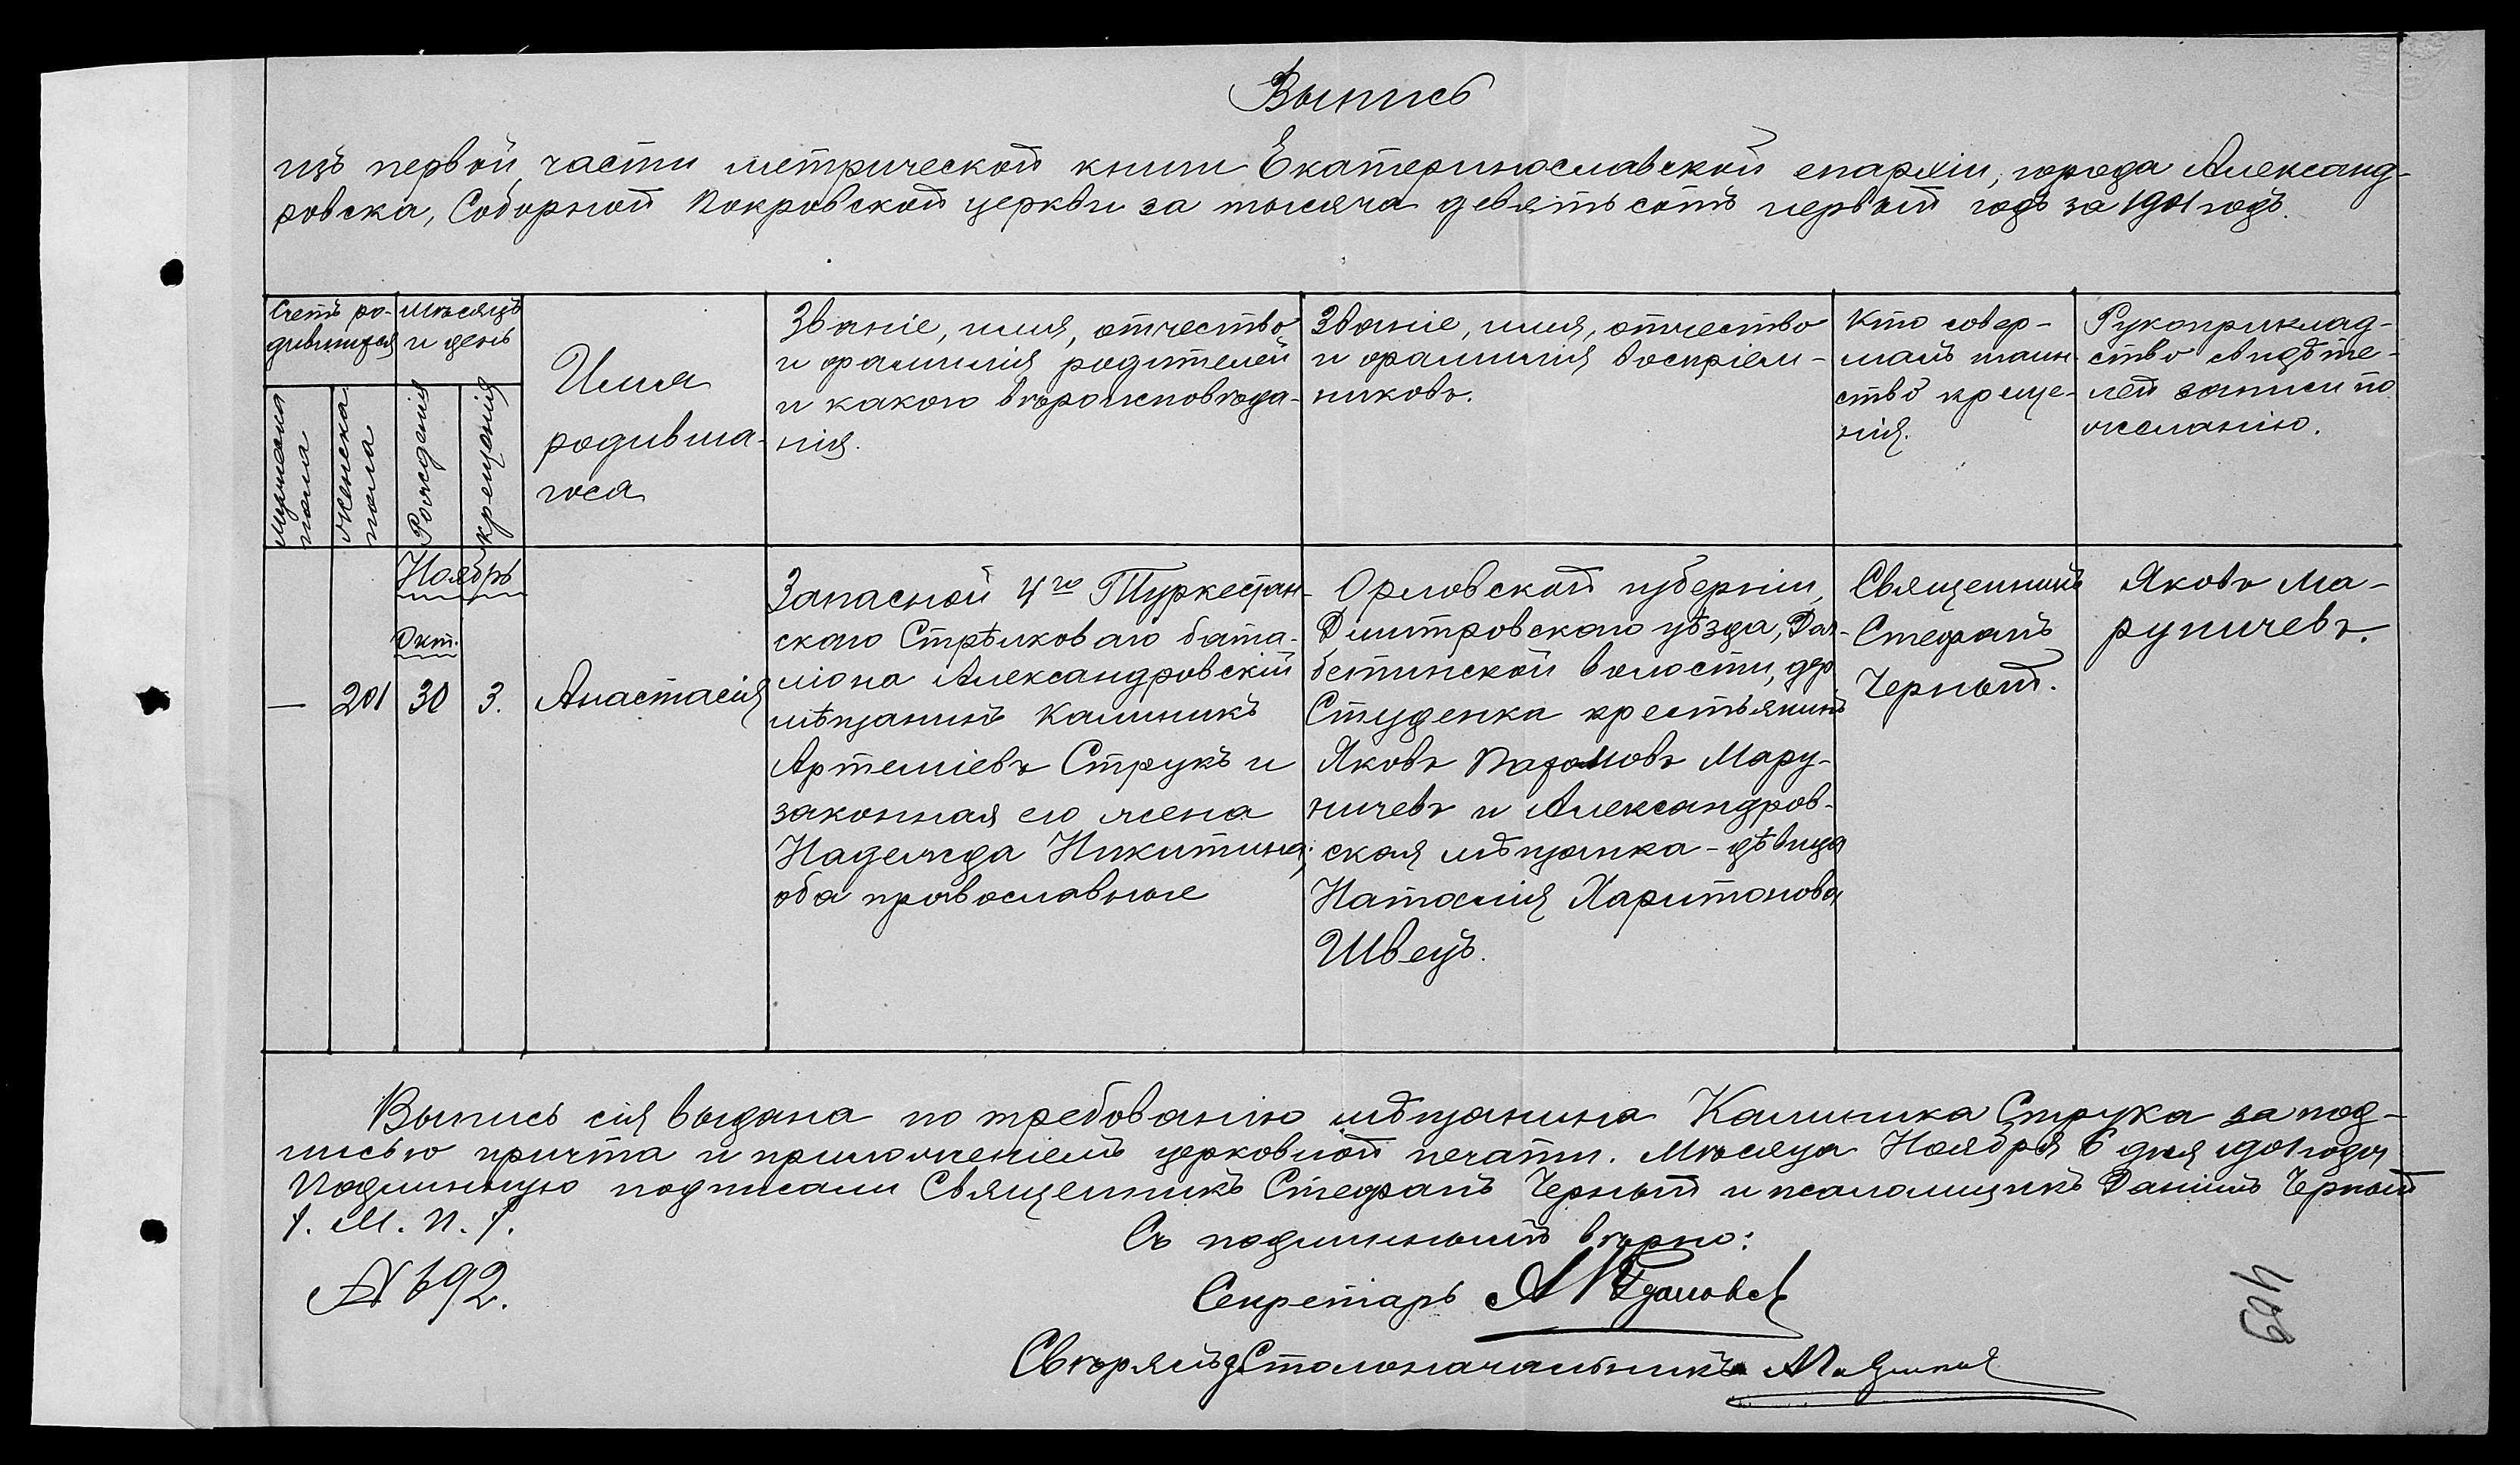 Выпись
изъ первой части метрической книги Екатеринославской епархіи, города Александ-
ровска, Соборной Покровской церкви за тысяча девятьсотъ первый годъ за 1901 годъ.
Счетъ ро-
дившихся
Мѣсяцъ
и день
Мужеска
пола
Женска
пола
Рожденія
Крещенія
Имя
родивша-
гося
Званіе, имя, отчество
и фамилія родителей
и какого вѣроисповѣда-
нія.
Званіе, имя, отчество
и фамилія воспріем-
никовъ.
Кто совер-
шалъ таин-
ство креще-
нія.
Рукоприклад-
ство свидѣте-
лей записи по
желанію.
Ноябрь
Окт.
— 201 30 3. Анастасія
Запасной 4го Туркестан-
скаго Стрѣлковаго бата-
ліона Александровскій
мѣщанинъ Калиникъ
Артеміевъ Струкъ и
законная его жена
Надежда Никитина;
оба православные
Орловской губерніи,
Дмитровскаго уѣзда,
волости, дер
Студенка крестьянинъ
Яковъ Мару-
ничевъ и Александров-
ская мѣщанка-дѣвица
Наталія Харитонова
Швецъ.
Священникъ
Стефанъ
Черный.
Яковъ Ма-
руничевъ.
Выпись сія выдана по требованію мѣщанина Калиника Струка за под-
писью причта и приложеніемъ церковной печати. Мѣсяца Ноября 6 дня 1901 года
Подлинную подписали Священникъ Стефанъ Черный и псаломщикъ Даніилъ Черный
/. М. П. /.
Съ подлиннымъ вѣрно:
№ 692.
Секретарь
Свѣрялъ Столоначальникъ
469